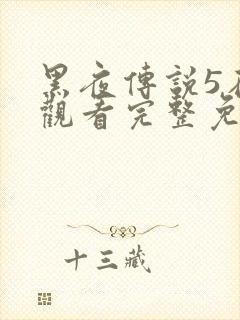 黑夜傳說5
觀看完整免
十三藏